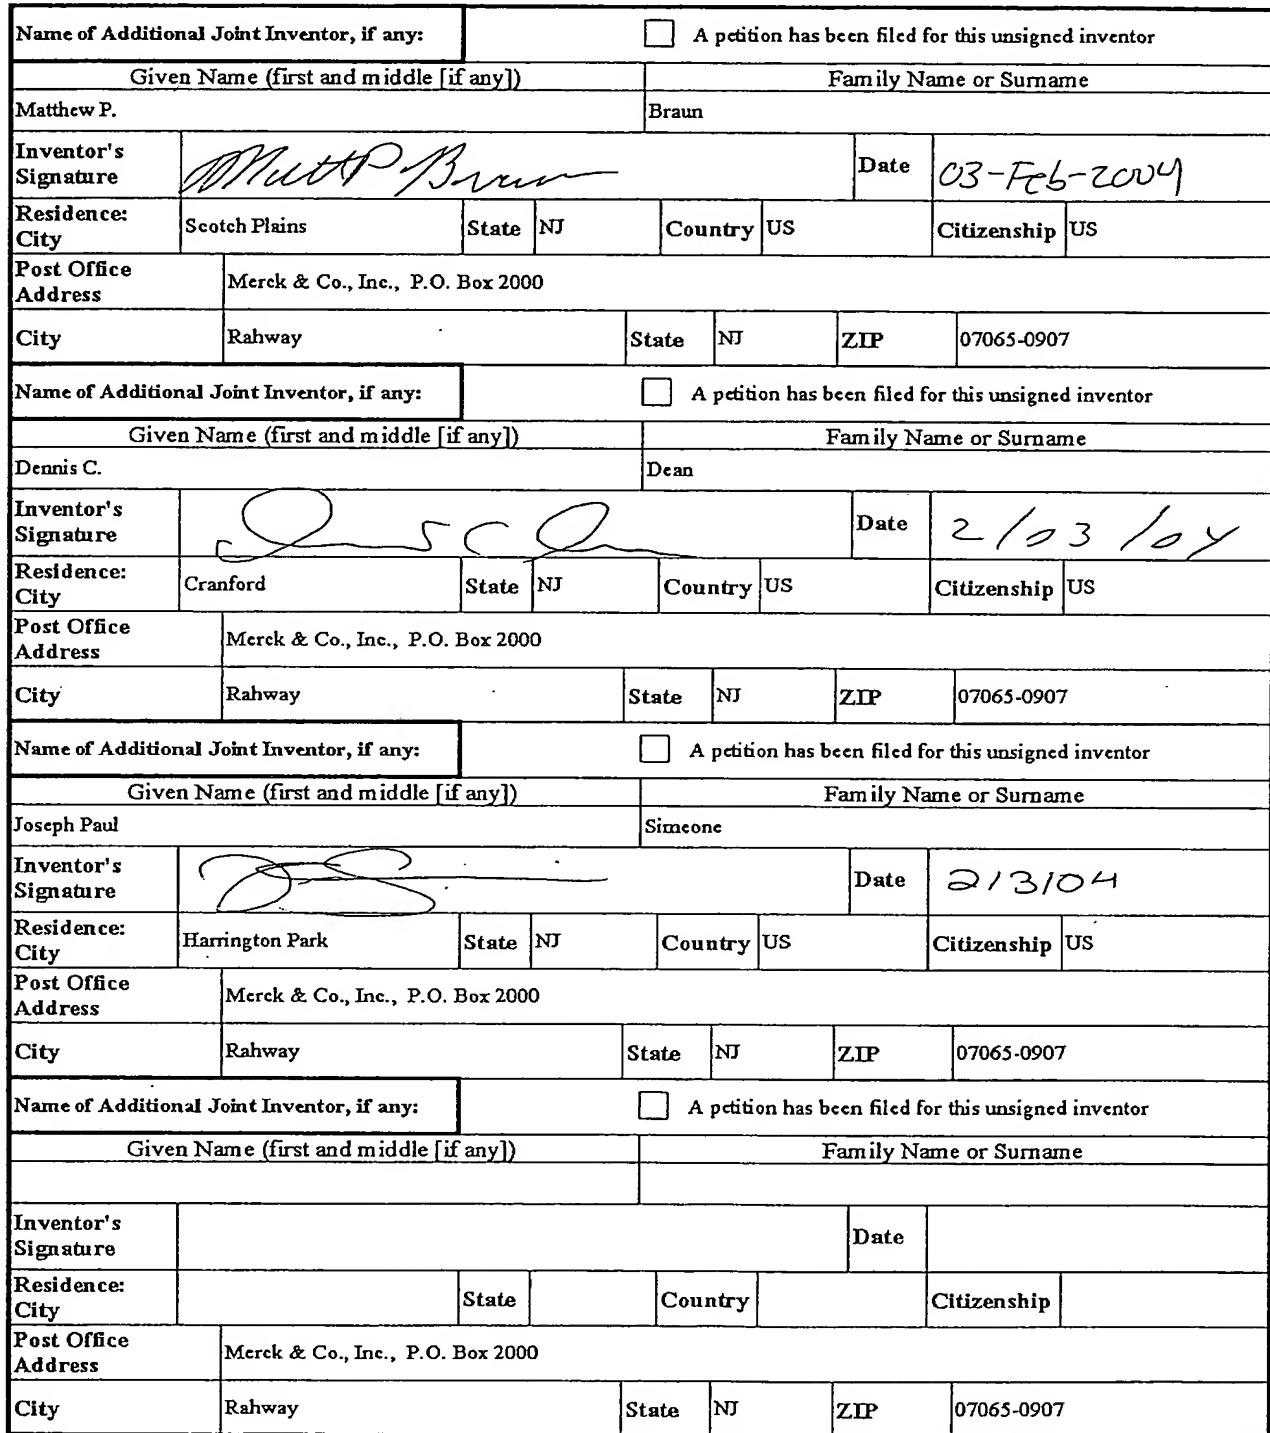 Name of Additional Joint Inventor, if any: A petition has been filed for this unsigned inventor
Given Name (first and middle [if any]) Family Name or Surname
Matthew P. Braun
Inventor's Signature Matt P Braun Date 03-Feb-2004
Residence: City Scotch Plains State NJ Country US Citizenship US
Post Office Address Merck & Co., Inc., P.O. Box 2000
City Rahway State NJ ZIP 07065-0907
Name of Additional Joint Inventor, if any: A petition has been filed for this unsigned inventor
Given Name (first and middle [if any]) Family Name or Surname
Dennis C. Dean
Inventor's Signature Date 2/03/04
Residence: City Cranford State NJ Country US Citizenship US
Post Office Address Merck & Co., Inc., P.O. Box 2000
City Rahway State NJ ZIP 07065-0907
Name of Additional Joint Inventor, if any: A petition has been filed for this unsigned inventor
Given Name (first and middle [if any]) Family Name or Surname
Joseph Paul Simeone
Inventor's Signature Date 2/3/04
Residence: City Harrington Park State NJ Country US Citizenship US
Post Office Address Merck & Co., Inc., P.O. Box 2000
City Rahway State NJ ZIP 07065-0907
Name of Additional Joint Inventor, if any: A petition has been filed for this unsigned inventor
Given Name (first and middle [if any]) Family Name or Surname
Inventor's Signature Date
Residence: City State Country Citizenship
Post Office Address Merck & Co., Inc., P.O. Box 2000
City Rahway State NJ ZIP 07065-0907